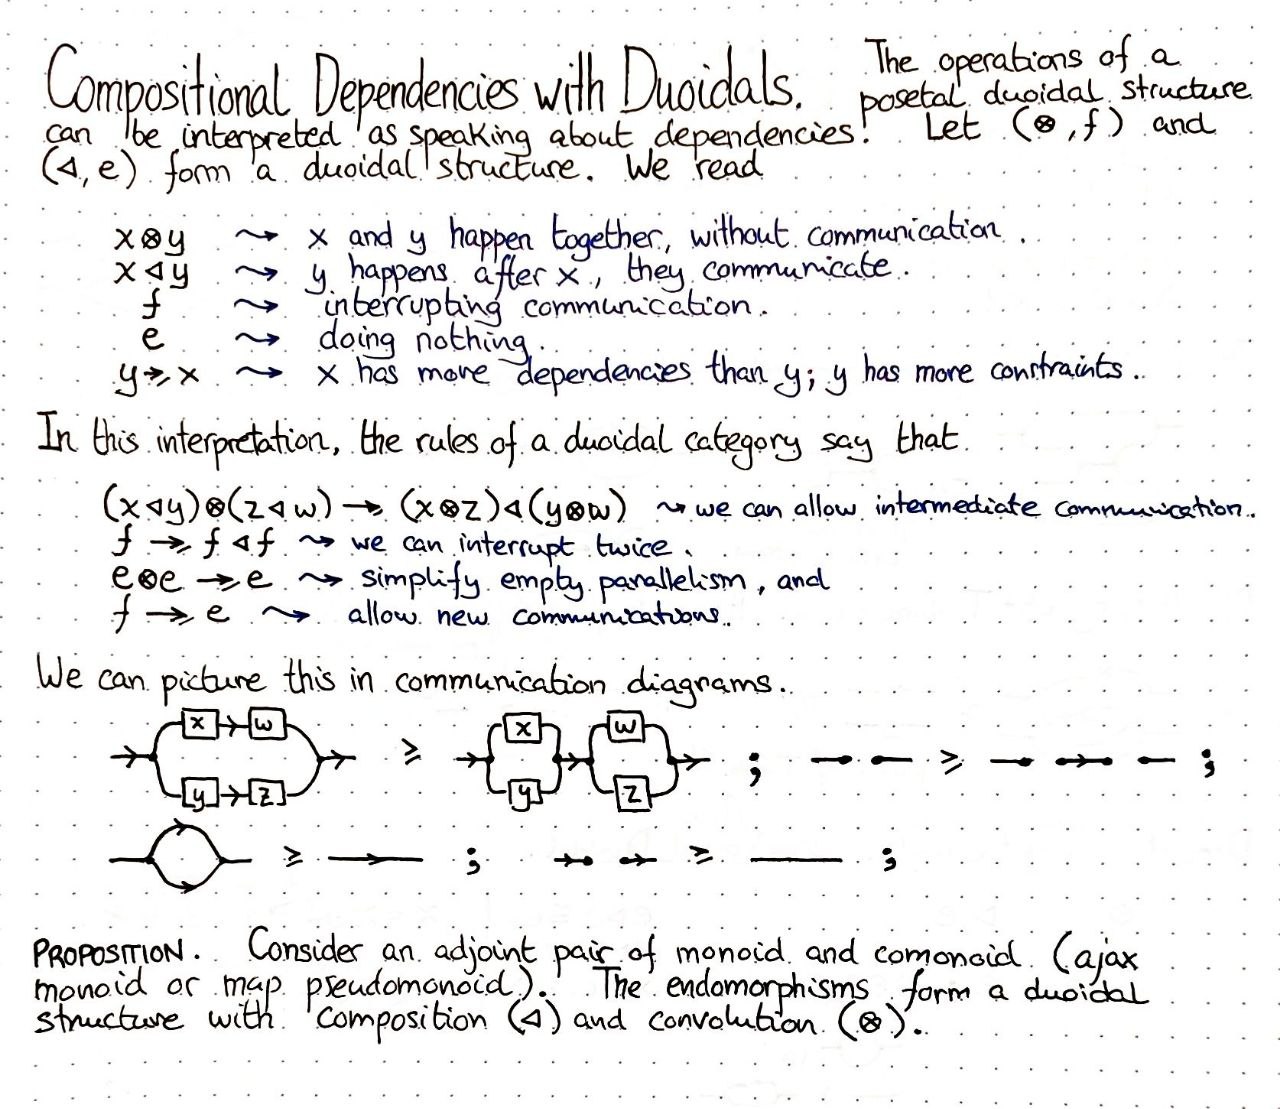 Compositional Dependencies with Duoidals. The operations of a
posetal duoidal structure
can be interpreted as speaking about dependencies. Let (⊗, f) and
(◁, e) form a duoidal structure. We read
x⊗y ⤳ x and y happen together, without communication.
x◁y ⤳ y happens after x, they communicate.
f ⤳ interrupting communication.
e ⤳ doing nothing.
y→x ⤳ x has more dependencies than y; y has more constraints.
In this interpretation, the rules of a duoidal category say that
(x◁y)⊗(z◁w) → (x⊗z)◁(y⊗w) ⤳ we can allow intermediate communication.
f → f◁f ⤳ we can interrupt twice.
e⊗e → e ⤳ simplify empty parallelism, and
f → e ⤳ allow new communications.
We can picture this in communication diagrams.
x w ≥ x w ; ≥ ;
y z y z
≥ ; ≥ ;
PROPOSITION. Consider an adjoint pair of monoid and comonoid (ajax
monoid or map pseudomonoid). The endomorphisms form a duoidal
structure with composition (◁) and convolution (⊗).